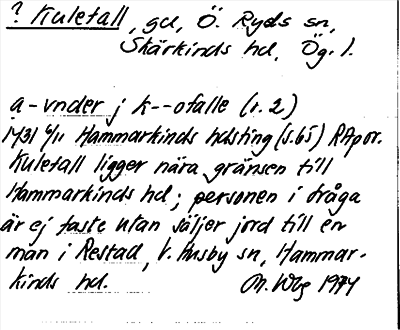 ? Kuletall, gd, Ö. Ryds sn,
Skärkinds hd, Ög. l.
a-vnder j k--ofalle (r. 2)
1431 6/11 Hammarkinds hdsting (s. 65) RApor.
Kuletall ligger nära gränsen till
Hammarkinds hd; personen i fråga
är ej faste utan säljer jord till en
man i Restad, V. Husby sn, Hammar-
kinds hd. M. Wbg 1974